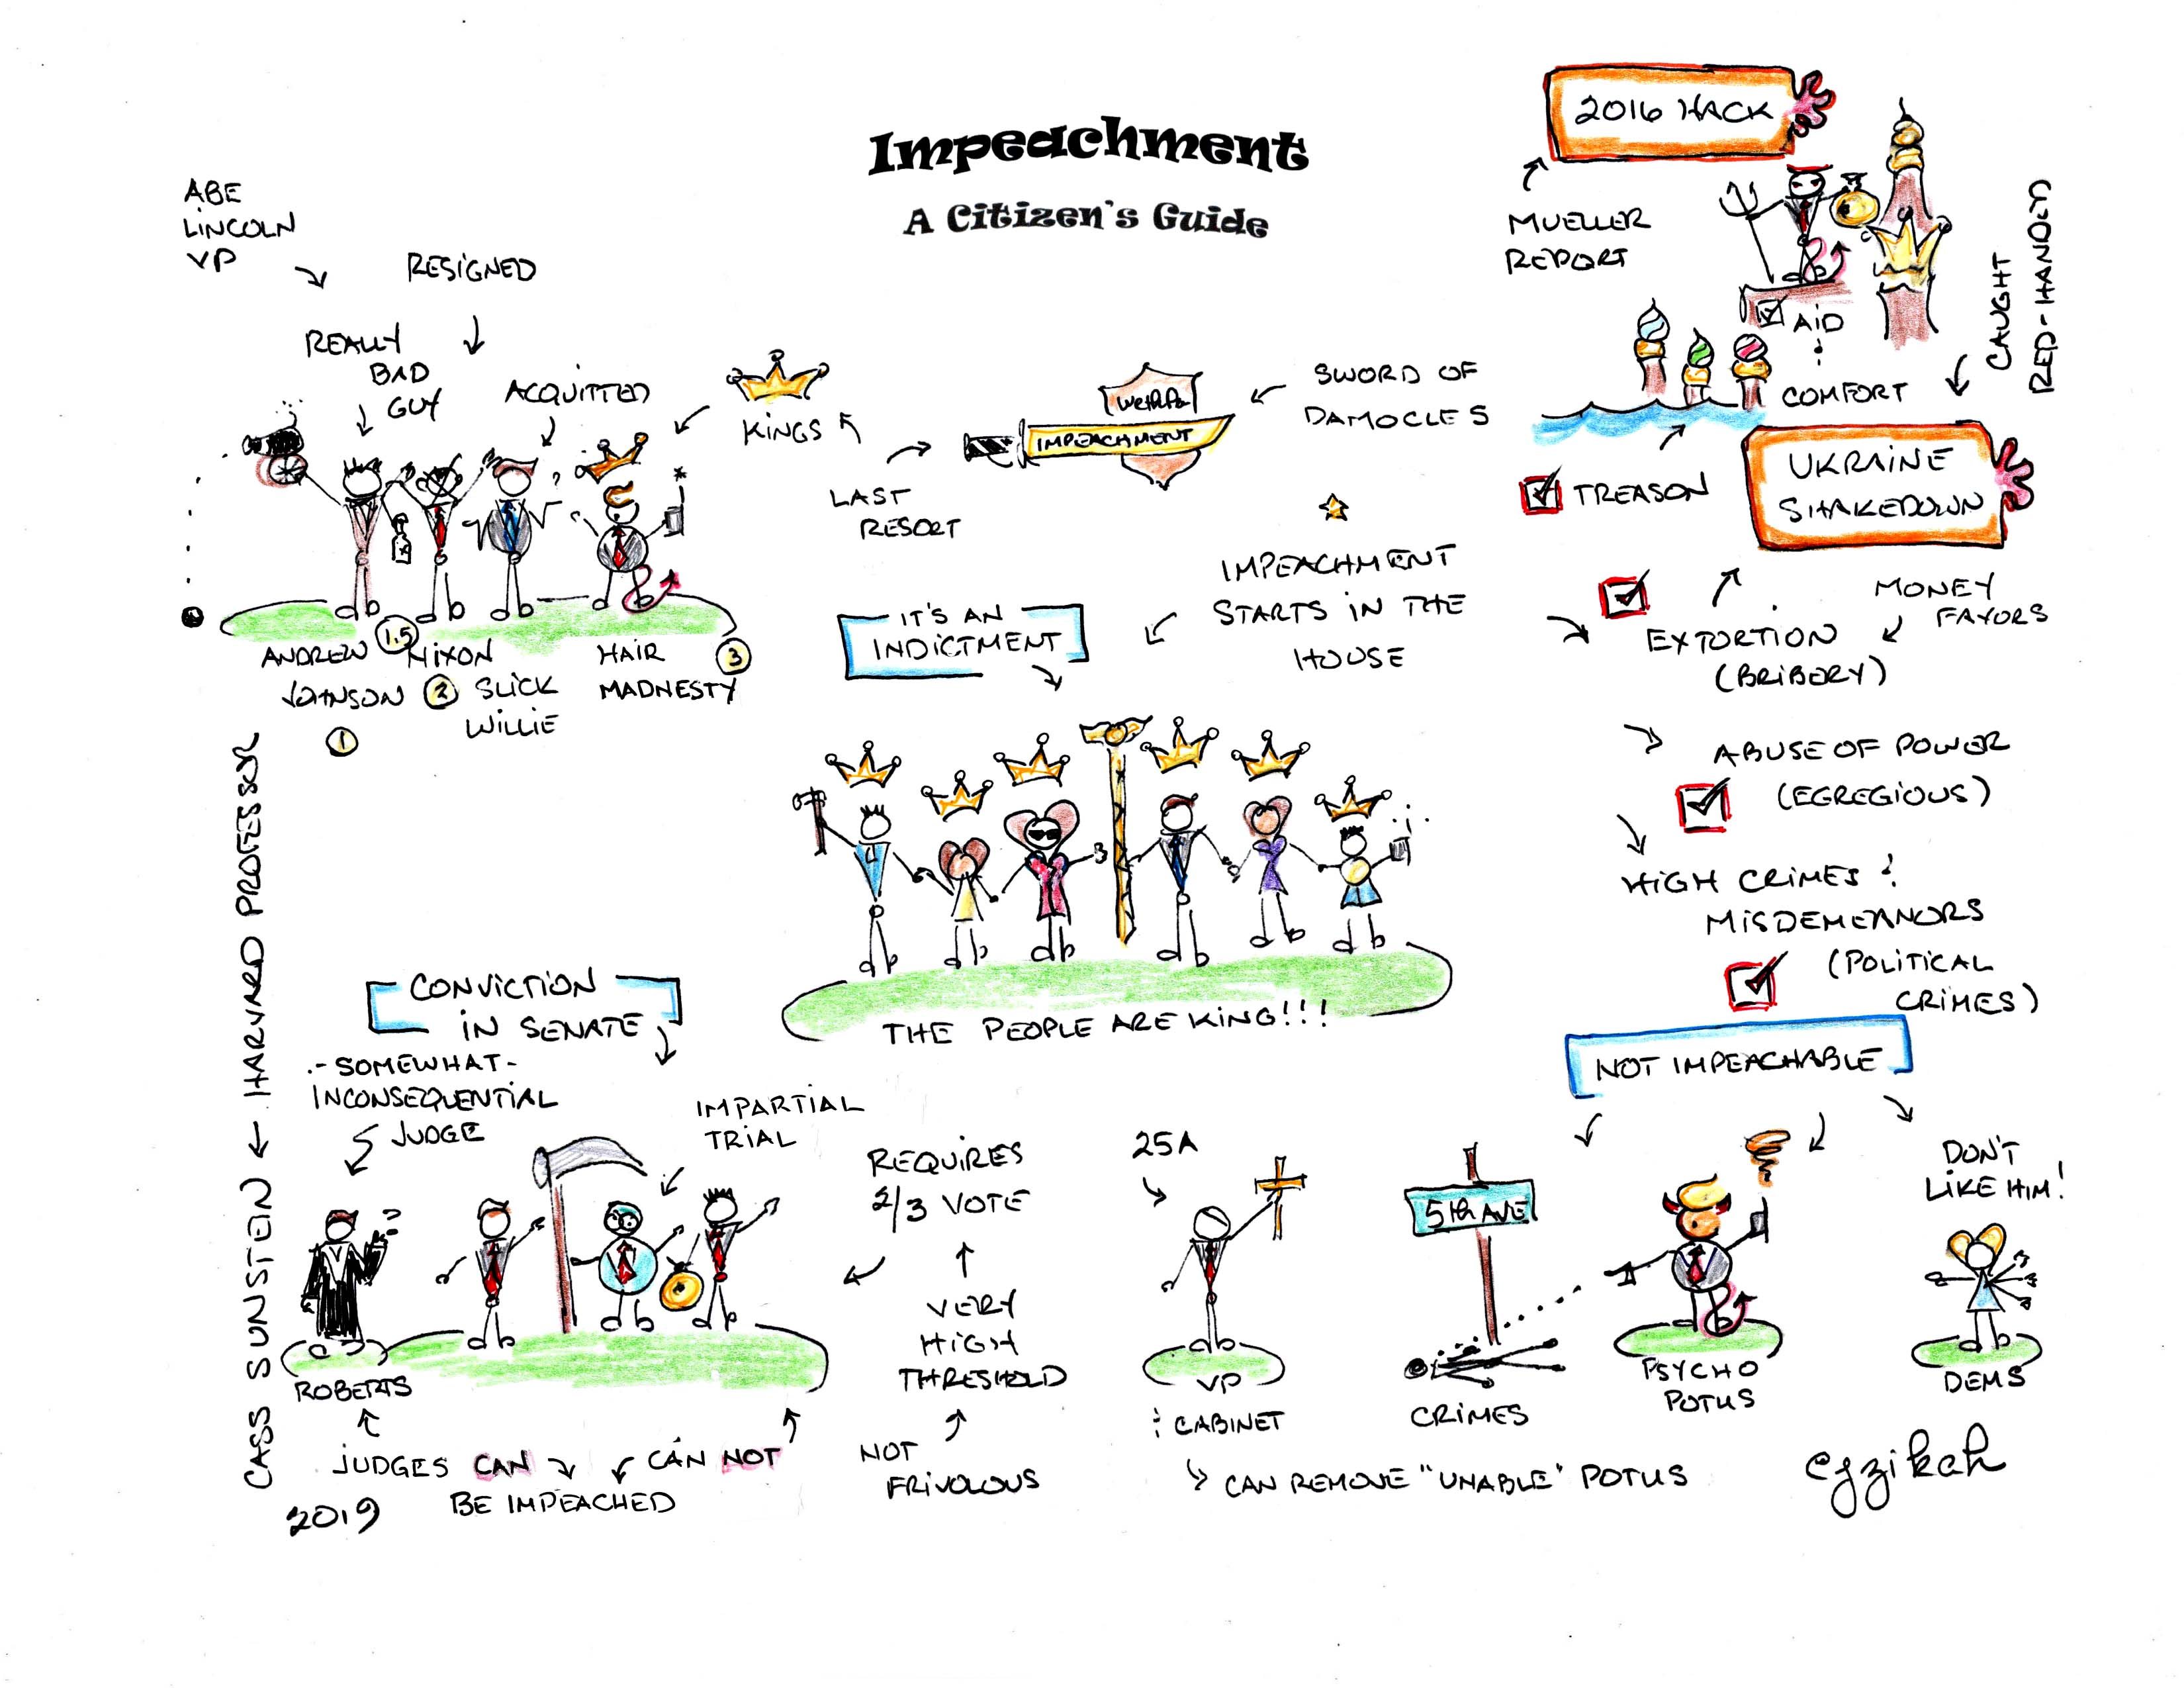 Impeachment
A Citizen's Guide
ABE
LINCOLN
VP
RESIGNED
REALLY
BAD
GUY
ACQUITTED
KINGS
ANDREW
JOHNSON
1
1.5
NIXON
2
SLICK
WILLIE
HAIR
MADNESTY
3
LAST
RESORT
IMPEACHMENT
SWORD OF
DAMOCLES
IMPEACHMENT
STARTS IN THE
HOUSE
IT'S AN
INDICTMENT
THE PEOPLE ARE KING!!!
2016 HACK
MUELLER
REPORT
AID
:
COMFORT
CAUGHT
RED-HANDED
TREASON
UKRAINE
SHAKEDOWN
MONEY
FAVORS
EXTORTION
(BRIBERY)
ABUSE OF POWER
(EGREGIOUS)
HIGH CRIMES :
MISDEMEANORS
(POLITICAL
CRIMES)
NOT IMPEACHABLE
CASS SUNSTEIN ← HARVARD PROFESSOR
CONVICTION
IN SENATE
.-SOMEWHAT-
INCONSEQUENTIAL
JUDGE
IMPARTIAL
TRIAL
REQUIRES
2/3 VOTE
VERY
HIGH
THRESHOLD
NOT
FRIVOLOUS
ROBERTS
JUDGES CAN
CAN NOT
BE IMPEACHED
2019
25A
VP
: CABINET
CAN REMOVE "UNABLE" POTUS
5th AVE
CRIMES
PSYCHO
POTUS
DON'T
LIKE HIM!
DEMS
egzikah